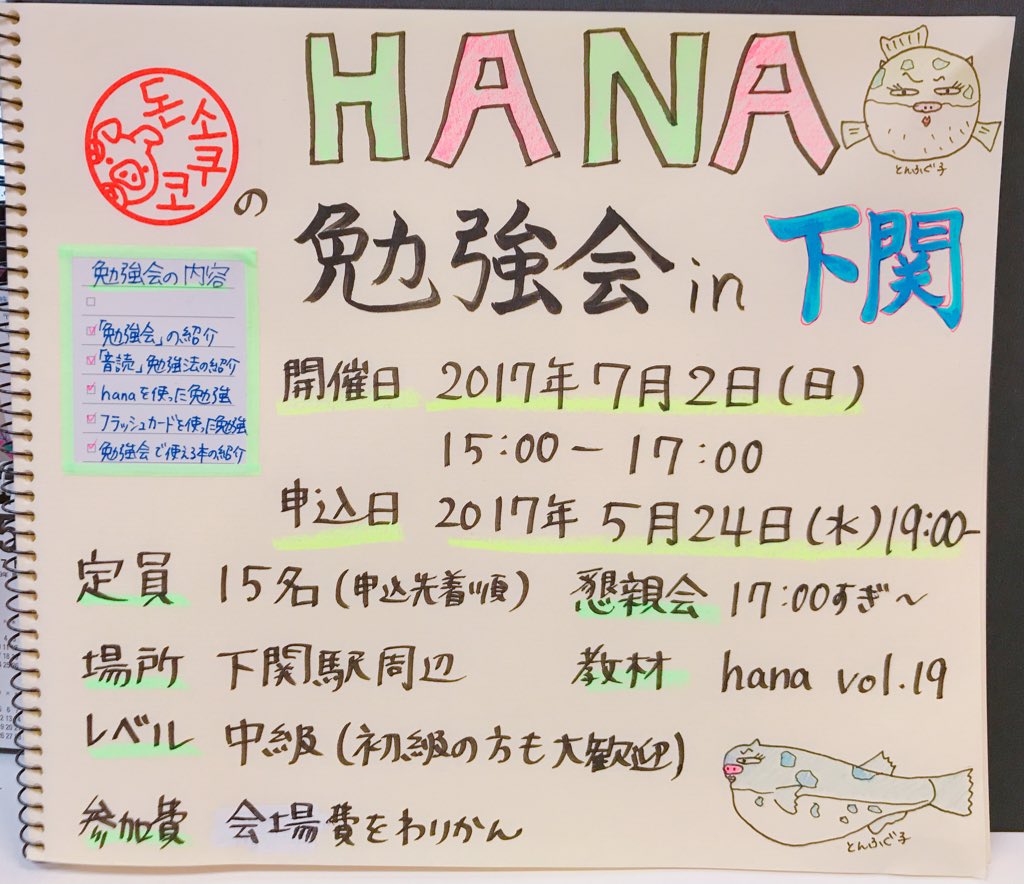 HANA
돈소쿠코
の
とんふぐ子
勉強会 in 下関
勉強会の内容
「勉強会」の紹介
「音読」勉強法の紹介
hanaを使った勉強
フラッシュカードを使った勉強
勉強会で使える本の紹介
開催日 2017年7月2日(日)
15:00ー17:00
申込日 2017年5月24日(水)19:00-
定員 15名(申込先着順) 懇親会 17:00すぎ〜
場所 下関駅周辺 教材 hana vol.19
レベル 中級(初級の方も大歓迎)
参加費 会場費をわりかん
とんふぐ子